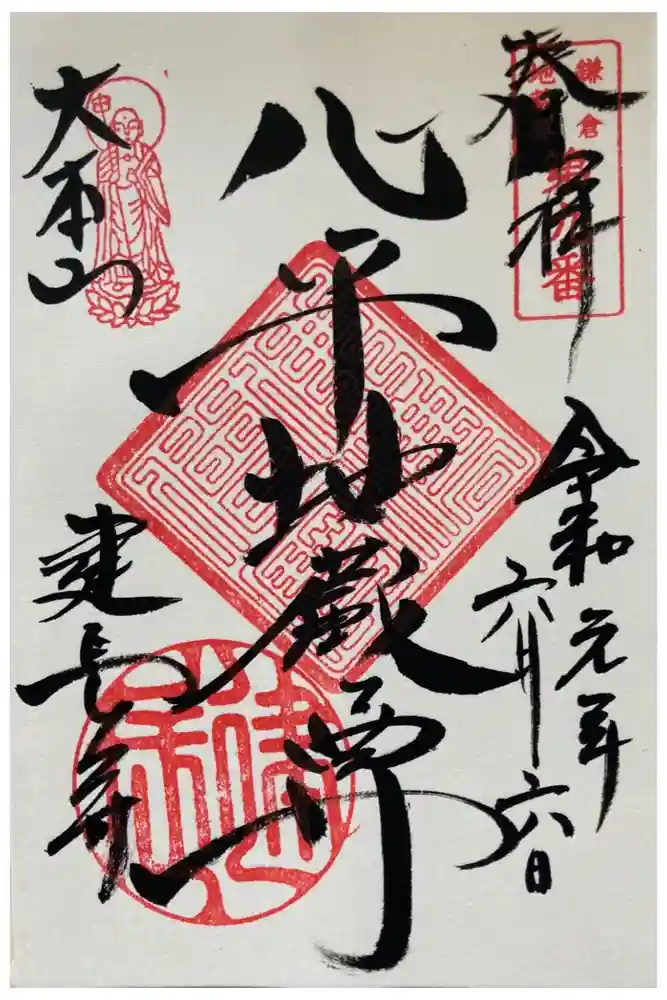 奉拝
鎌倉
番
令和元年
六月十六日
心平地蔵尊
大本山
建長寺